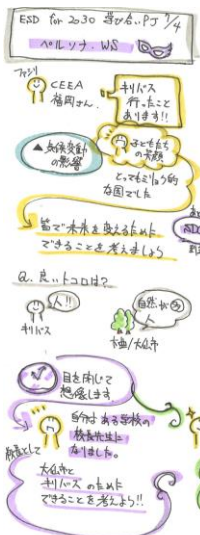 ESD for 2030 学び合いPJ 7/4
ペルソナ WS
ファシリ
CEEA
福岡さん
キリバス
行ったこと
あります!!
▲気候変動
の影響
子どもたち
の笑顔
とってもみりょく的
な国でした
皆で未来を変えるために
できることを考えましょう
Q. 良いトコロは?
人!!
キリバス
自然が多
人
大仙市
目を閉じて
想像します
自分はある学校の
校長先生に
なりました。
校長として
大仙市と
キリバスのために
できることを考えよう!!